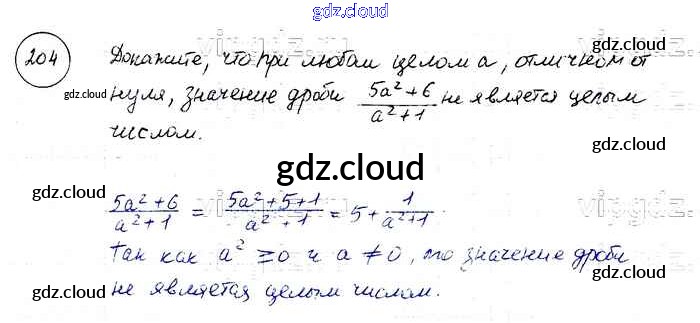 gdz.cloud
204
Докажите, что при любом целом a, отличном от
gdz.cloud
нуля, значение дроби (5a²+6)/(a²+1) не является целым
gdz.cloud
числом.
gdz.cloud
gdz.cloud
gdz.cloud
(5a²+6)/(a²+1) = (5a²+5+1)/(a²+1) = 5 + 1/(a²+1)
Так как a² ≥ 0 и a ≠ 0, то значение дроби
gdz.cloud
не является целым числом.
gdz.cloud
gdz.cloud